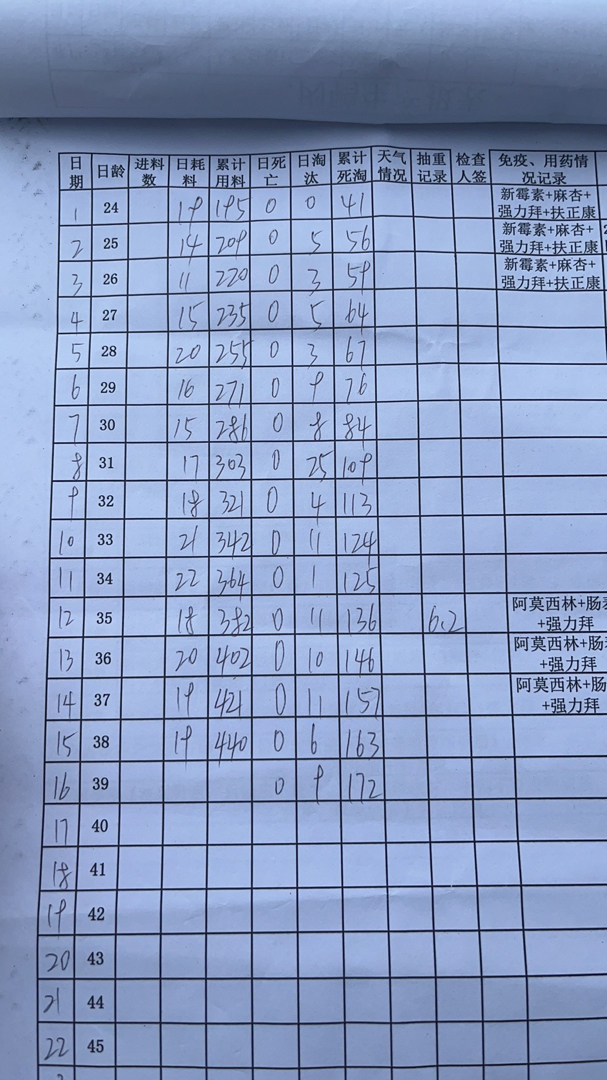 日期 日龄 进料数 日耗料 累计用料 日死亡 日淘汰 累计死淘 天气情况 抽重记录 检查人签 免疫、用药情况记录
1 24 19 195 0 0 41 新霉素+麻杏+强力拜+扶正康
2 25 14 209 0 5 56 新霉素+麻杏+强力拜+扶正康
3 26 11 220 0 3 59 新霉素+麻杏+强力拜+扶正康
4 27 15 235 0 5 64
5 28 20 255 0 3 67
6 29 16 271 0 9 76
7 30 15 286 0 8 84
8 31 17 303 0 25 109
9 32 18 321 0 4 113
10 33 21 342 0 11 124
11 34 22 364 0 1 125
12 35 18 382 0 11 136 6.2 阿莫西林+肠+强力拜
13 36 20 402 0 10 146 阿莫西林+肠+强力拜
14 37 19 421 0 11 157 阿莫西林+肠+强力拜
15 38 19 440 0 6 163
16 39 0 9 172
17 40
18 41
19 42
20 43
21 44
22 45